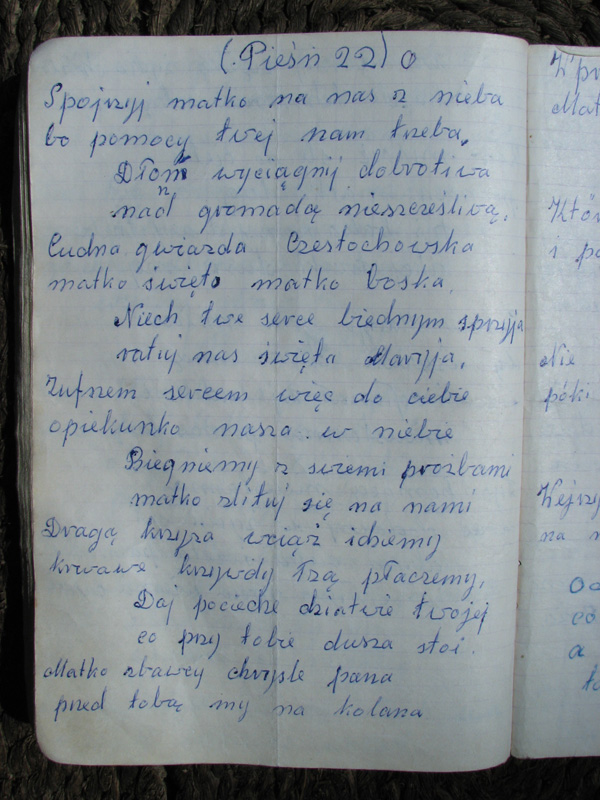 (Pieśń 22) o
Spojrzyj matko na nas z nieba
bo pomocy twej nam trzeba,
Dłoń wyciągnij dobrotiwa
nad gromadą nieszcześliwą,
Cudna gwiazda Czestochowska
matko święto matko boska,
Niech twe serce biednym sprzyja
ratuj nas święta Maryja,
Zufnem sercem więc do ciebie
opiekunko nasza w niebie
Biegniemy z swiemi prożbami
matko zlituj się na nami
Dragą krzyża wciąż idziemy
krwawe krzywdy łzą płaczemy,
Daj pocieche dziatwie twojej
co przy tobie dusza stoi.
Matko zbawcy chrysle pana
przed tobą my na kolana
Z'pr
Mat
Któr
i po
Nie
póki
Wejrzy
na n
co
a